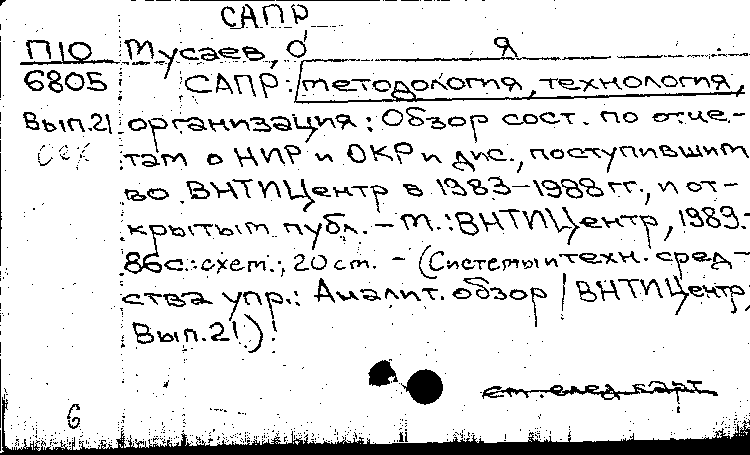 САПР
П10 Мусаев, О Я
6805 САПР: методология, технология,
Вып.21 организация: Обзор сост. по отче-
там о НИР и ОКР и дис., поступившим
во ВНТИЦентр в 1983-1988 гг., и от-
крытым публ. – М.: ВНТИЦентр, 1989.-
86с.: схем.; 20 см. – (Системы и техн. сред-
ства упр.: Аналит. обзор / ВНТИЦентр;
Вып.21)
см. след карт.
6